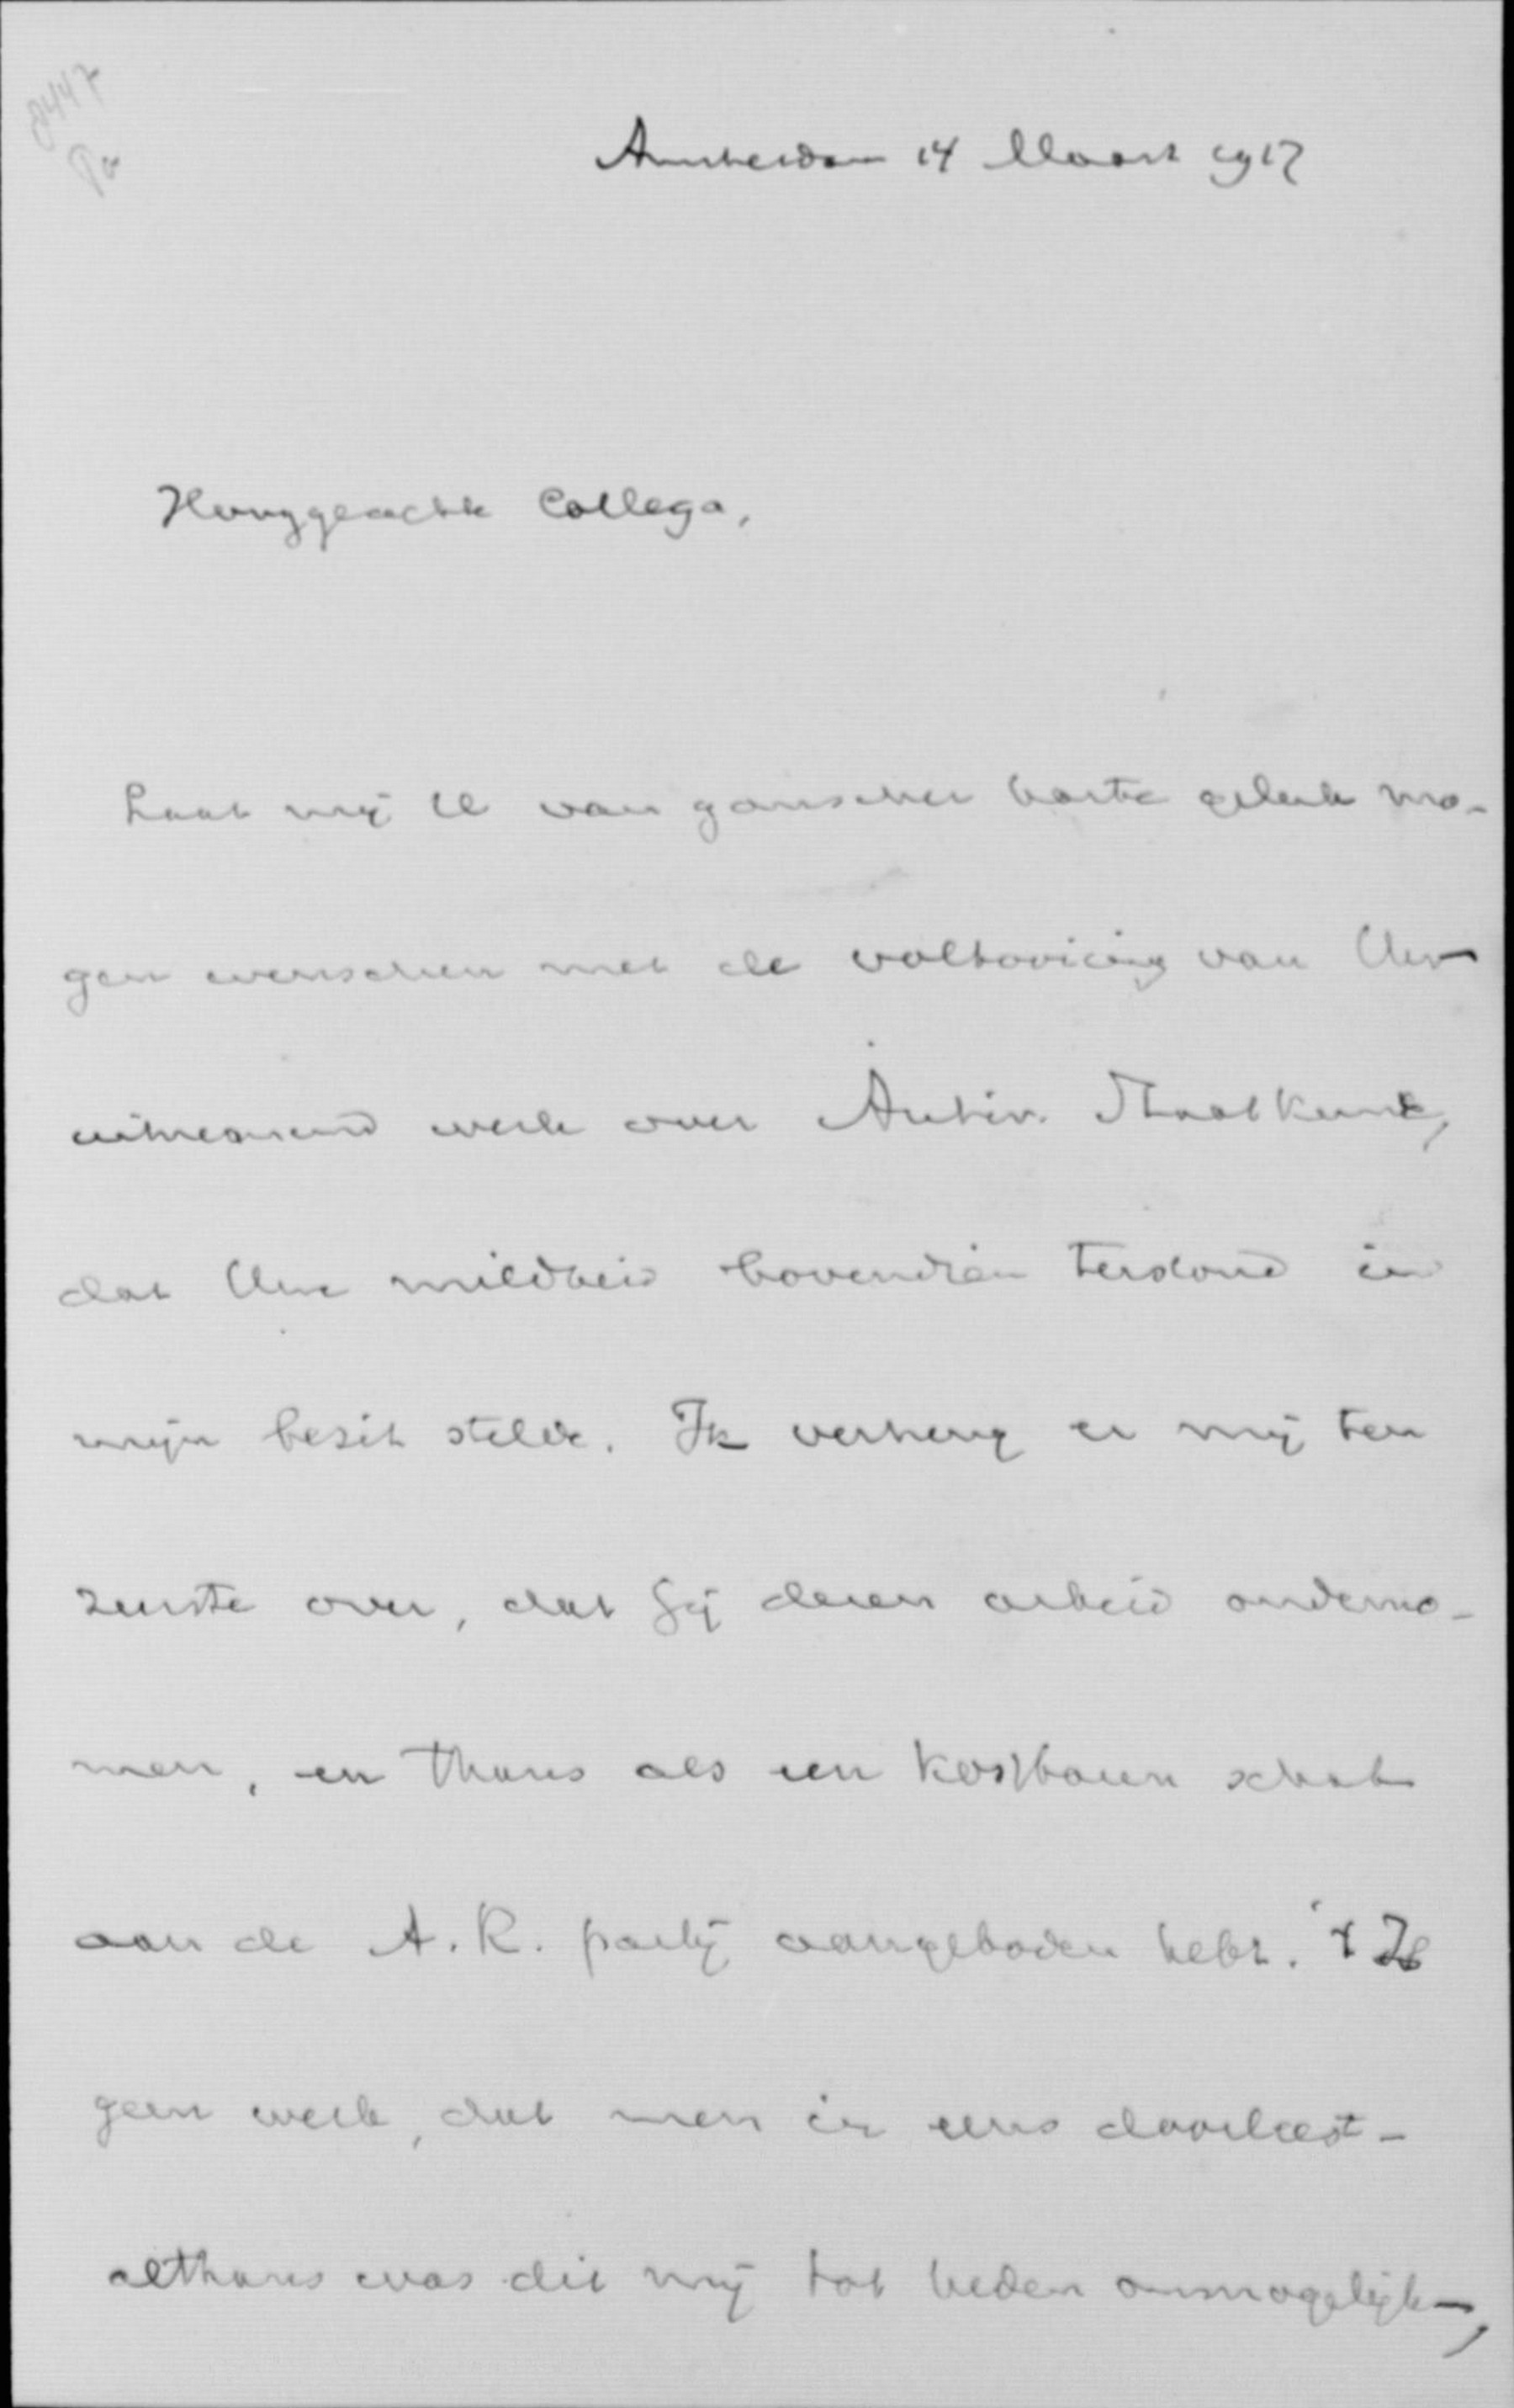 8447
Amsterdam 14 Maart 1917
Hooggeachte Collega,
Laat mij U van ganscher harte geluk mo-
gen wenschen met de voltooiing van Uw
uitnemend werk over Antirev. Staatkunde,
dat Uwe mildheid bovendien terstond in
mijn bezit stelde. Ik verheug er mij ten
zeerste over, dat Gij dezen arbeid onderno-
men, en thans als een kostbaren schat
aan de A. R. partij aangeboden hebt. 't Is
geen werk, dat men in eens doorleest -
althans was dit mij tot heden onmogelijk,